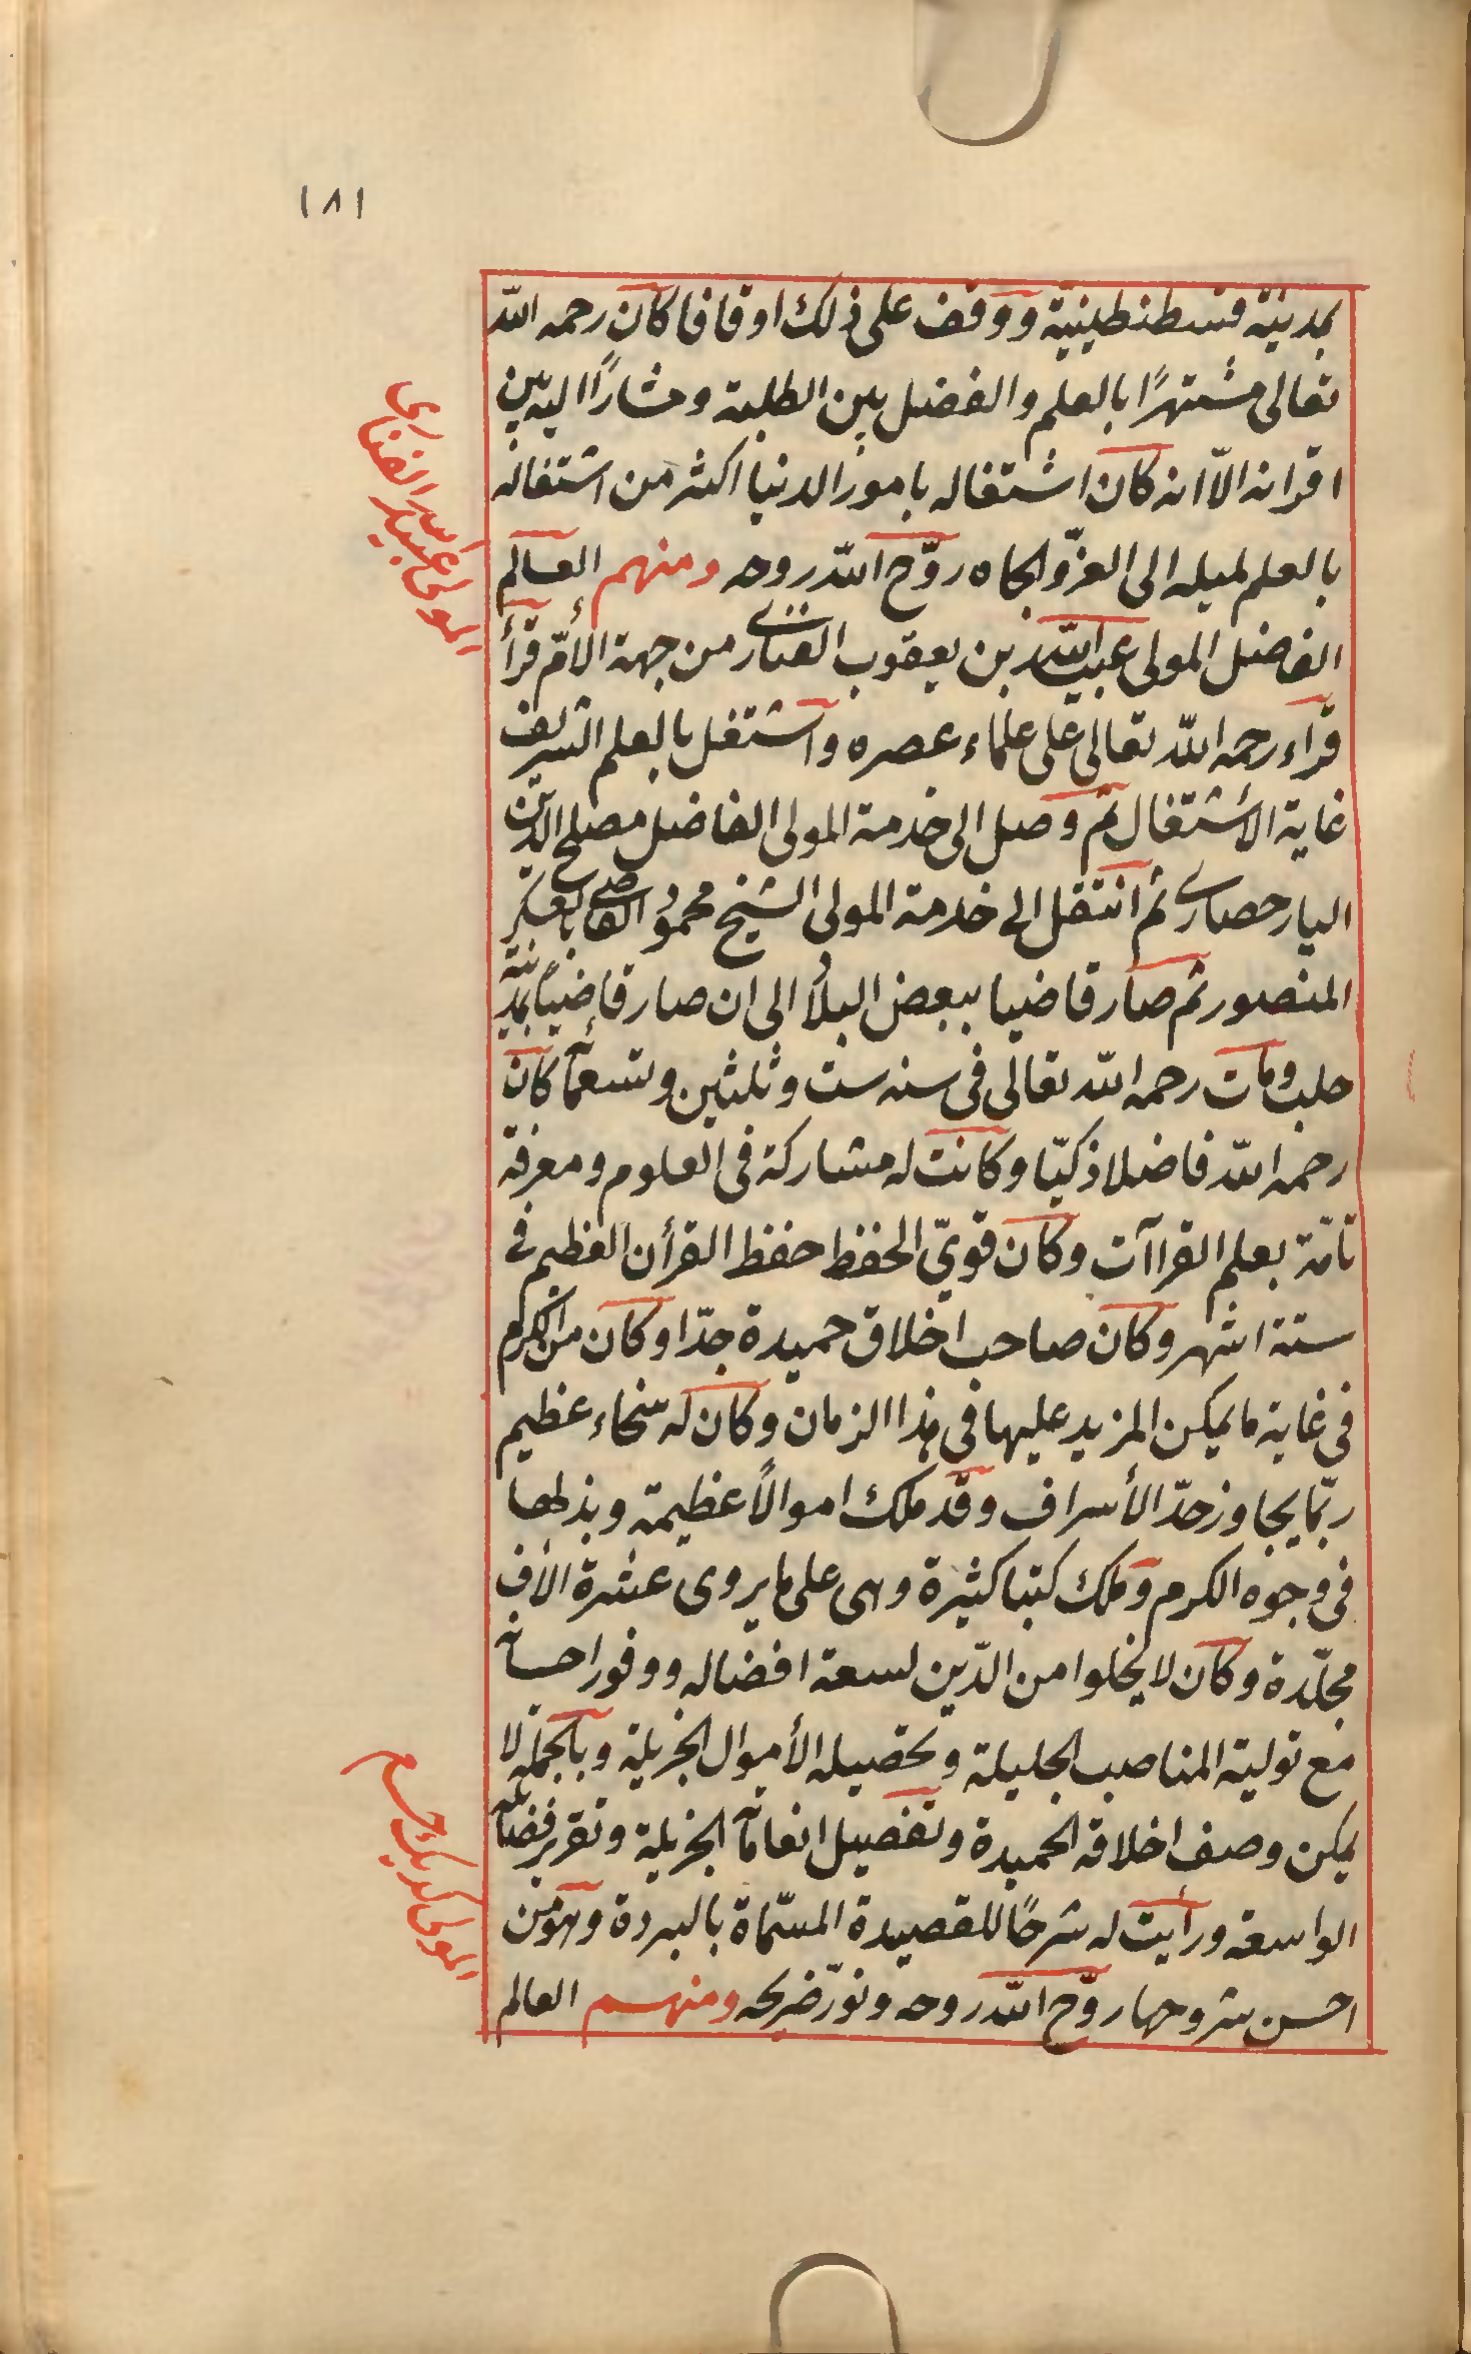 ١٨١
بمدينة قسطنطينية ووقف على ذلك اوقافا كان رحمه الله
تعالى مشتهرًا بالعلم والفضل بين الطلبة ومشارًا اليه بين
اقرانه الاّ انه كان اشتغاله بامور الدنيا اكثر من اشتغاله
بالعلم لميله الى العزّ والجاه روّح الله روحه ومنهم العالم
الفاضل المولى عبيد الله بن يعقوب الفنارى من جهة الأمّ قرأ
قراء رحمه الله تعالى على علماء عصره واشتغل بالعلم الشريف
غاية الأشتغال ثم وصل الى خدمة المولى الفاضل مصلح الدين
اليارحصارى ثم انتقل الى خدمة المولى الشيخ محمود القاضى بالعسكر
المنصور ثم صار قاضيا ببعض البلاد الى ان صار قاضيًا بمدينة
حلب ومات رحمه الله تعالى فى سنه ست وثلثين وتسعمائة كان
رحمه الله فاضلا ذكيّا وكانت له مشاركة فى العلوم ومعرفة
تامّة بعلم القراآت وكان قوىّ الحفظ حفظ القرأن العظيم فى
ستة اشهر وكان صاحب اخلاق حميدة جدّا وكان من الكرم
فى غاية ما يمكن المزيد عليها فى هذا الزمان وكان له سخاء عظيم
ربّما يجاوز حدّ الأسراف وقد ملك اموالاً عظيمة وبذلها
فى وجوه الكرم وملك كتبا كثيرة وهى على ما يروى عشرة الاف
مجلّدة وكان لا يخلوا من الدّين لسعة افضاله ووفور احسانه
مع تولية المناصب الجليلة وتحصيله الأموال الجزيلة وبالجملة لا
يمكن وصف اخلاقه الحميدة وتفصيل انعاماته الجزيلة وتقرير فضائله
الواسعة ورأيت له شرحًا للقصيدة المسمّاة بالبردة وهو من
احسن شروحها روّح الله روحه ونوّر ضريحه ومنهم العالم
المولى عبيد الله الفنارى
المولى